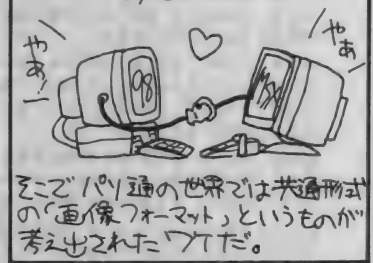 やぁー
やぁ
98
そこでパソ通の世界では共通形式
の「画像フォーマット」というものが
考え出されたワケだ。